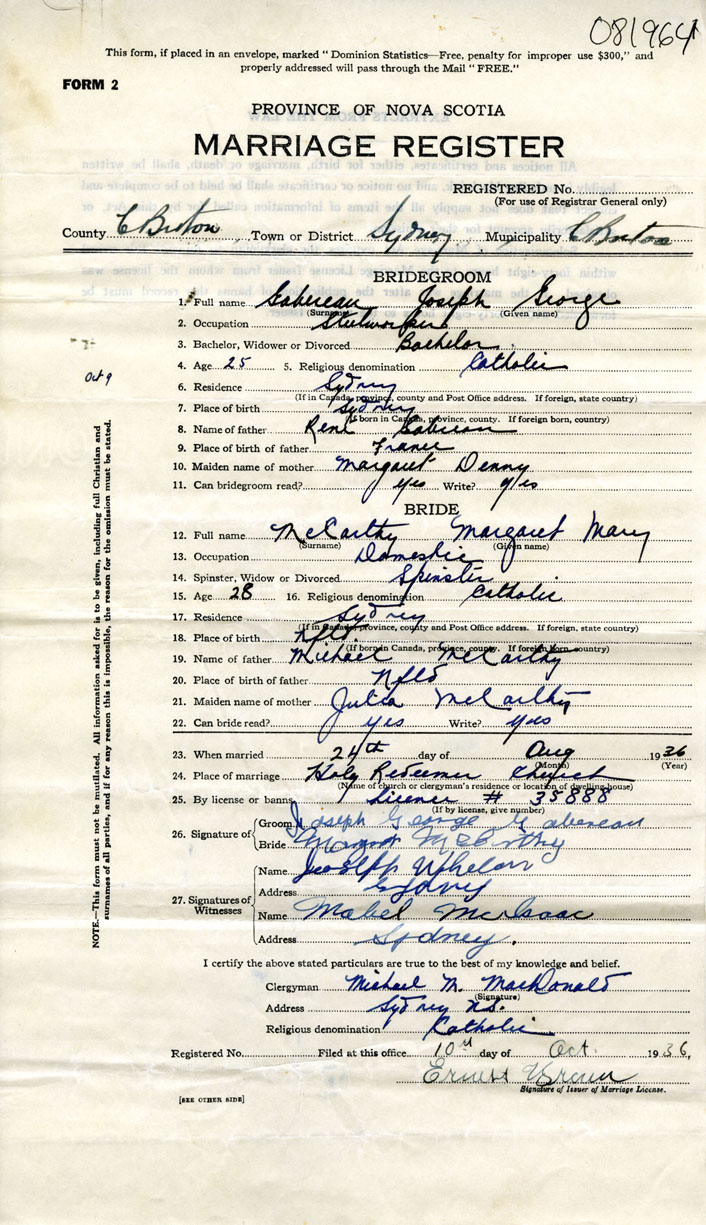 081964
This form, if placed in an envelope, marked "Dominion Statistics—Free, penalty for improper use $300," and
properly addressed will pass through the Mail "FREE."
FORM 2
PROVINCE OF NOVA SCOTIA
MARRIAGE REGISTER
REGISTERED No.
(For use of Registrar General only)
County C Breton Town or District Sydney Municipality C Breton
BRIDEGROOM
1. Full name Gabereau Joseph George
(Surname) (Given name)
2. Occupation Steelworker
3. Bachelor, Widower or Divorced Bachelor
4. Age 25 5. Religious denomination Catholic
Oct 9
6. Residence Sydney
(If in Canada, province, county and Post Office address. If foreign, state country)
7. Place of birth Sydney
(If born in Canada, province, county. If foreign born, country)
8. Name of father Rene Gabereau
9. Place of birth of father France
10. Maiden name of mother Margaret Denny
11. Can bridegroom read? yes Write? yes
BRIDE
12. Full name McCarthy Margaret Mary
(Surname) (Given name)
13. Occupation Domestic
14. Spinster, Widow or Divorced Spinster
15. Age 28 16. Religious denomination Catholic
17. Residence Sydney
(If in Canada, province, county and Post Office address. If foreign, state country)
18. Place of birth Nfld
(If born in Canada, province, county. If foreign born, country)
19. Name of father Michael McCarthy
20. Place of birth of father Nfld
21. Maiden name of mother Julia McCarthy
22. Can bride read? yes Write? yes
23. When married 24th day of Aug 1936
(Month) (Year)
24. Place of marriage Holy Redeemer Church
(Name of church or clergyman's residence or location of dwelling-house)
25. By license or banns License # 35888
(If by license, give number)
26. Signature of Groom Joseph George Gabereau
Bride Margaret McCarthy
27. Signatures of Witnesses
Name Joseph Whelan
Address Sydney
Name Mabel McIsaac
Address Sydney.
I certify the above stated particulars are true to the best of my knowledge and belief.
Clergyman Michael M. MacDonald
(Signature)
Address Sydney N.S.
Religious denomination Catholic
Registered No. Filed at this office 10th day of Oct. 1936,
Ernest
Signature of Issuer of Marriage License.
[SEE OTHER SIDE]
NOTE.—This form must not be mutilated. All information asked for is to be given, including full Christian and
surnames of all parties, and if for any reason this is impossible, the reason for the omission must be stated.